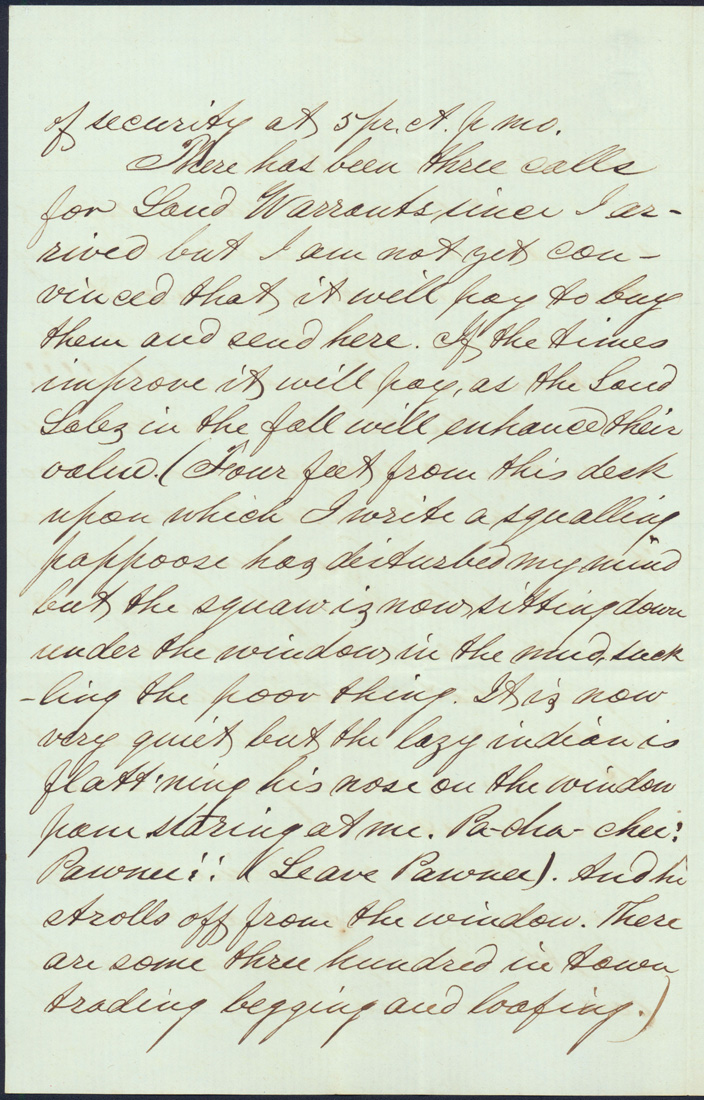 of security at 5 pr. ct. p mo.
There has been three calls
for Land Warrants since I ar-
rived but I am not yet con-
vinced that it will pay to buy
them and send here. If the times
improve it will pay, as the Land
Sales in the fall will enhance their
value. (Four feet from this desk
upon which I write a squalling
pappoose has disturbed my mind
but the squaw is now sitting down
under the window in the mud, suck
-ling the poor thing. It is now
very quiet but the lazy indian is
flatt'ning his nose on the window
pane staring at me. Pa-cha-chee!
Pawnee!! (Leave Pawnee). And he
strolls off from the window. There
are some three hundred in town
trading begging and loafing.)